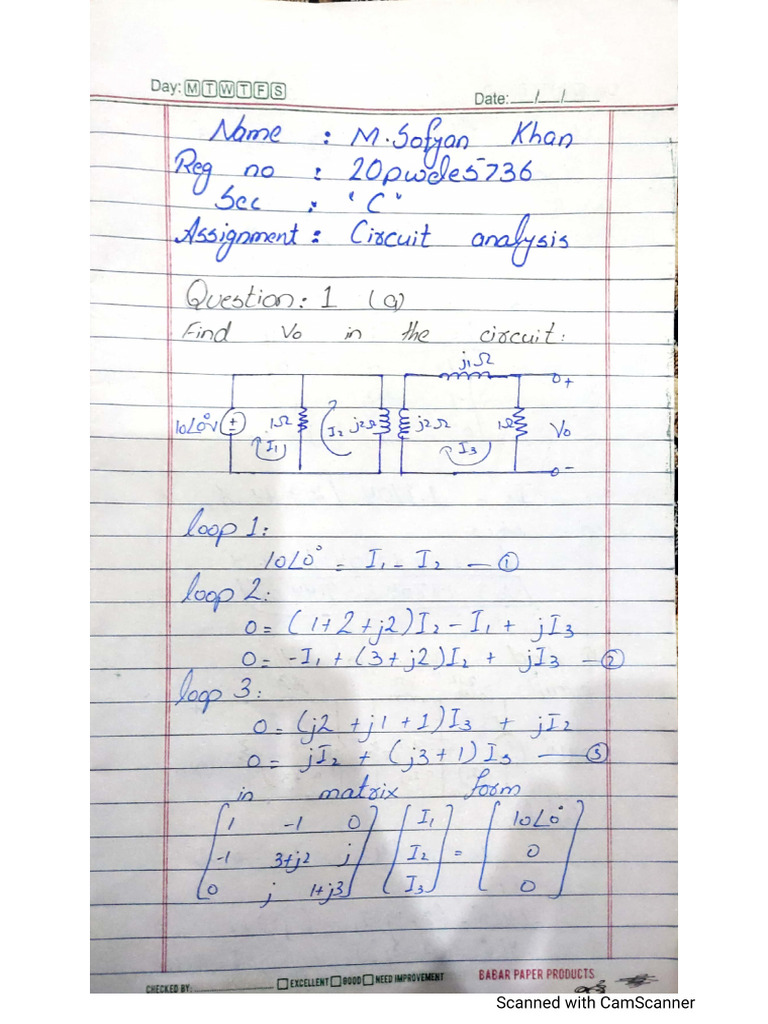 Day: M T W T F S
Date: __/__/____
Name : M. Sofyan Khan
Reg no : 20pwcle5736
Sec : "C"
Assignment : Circuit analysis
Question: 1 (a)
Find Vo in the circuit:
j1Ω
+
10∠0°V + − 1Ω I2 j2Ω j2Ω 1Ω Vo
I1 I3
−
loop 1:
10∠0° = I1 - I2 — ①
loop 2:
0 = (1+2+j2)I2 - I1 + jI3
0 = -I1 + (3+j2)I2 + jI3 — ②
loop 3:
0 = (j2 + j1 + 1)I3 + jI2
0 = jI2 + (j3+1)I3 — ③
in matrix form
[1 -1 0] [I1] [10∠0°]
[-1 3+j2 j] [I2] = [0]
[0 j 1+j3] [I3] [0]
CHECKED BY: EXCELLENT GOOD NEED IMPROVEMENT BABAR PAPER PRODUCTS
Scanned with CamScanner